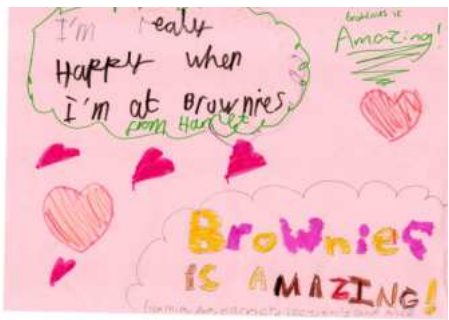 I'm realy
Happy when
I'm at Brownies
from Harriet
Brownies is
Amazing!
Brownies
is AMAZING!